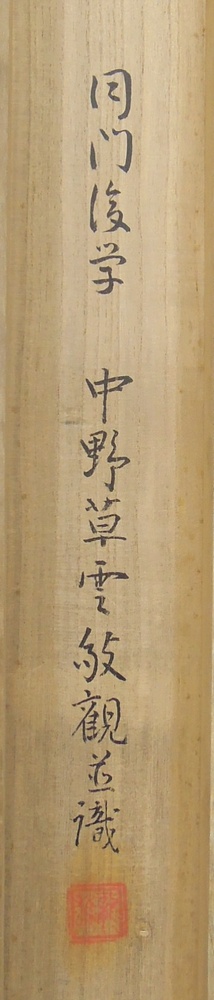 同門後学　中野草雲敬観並識